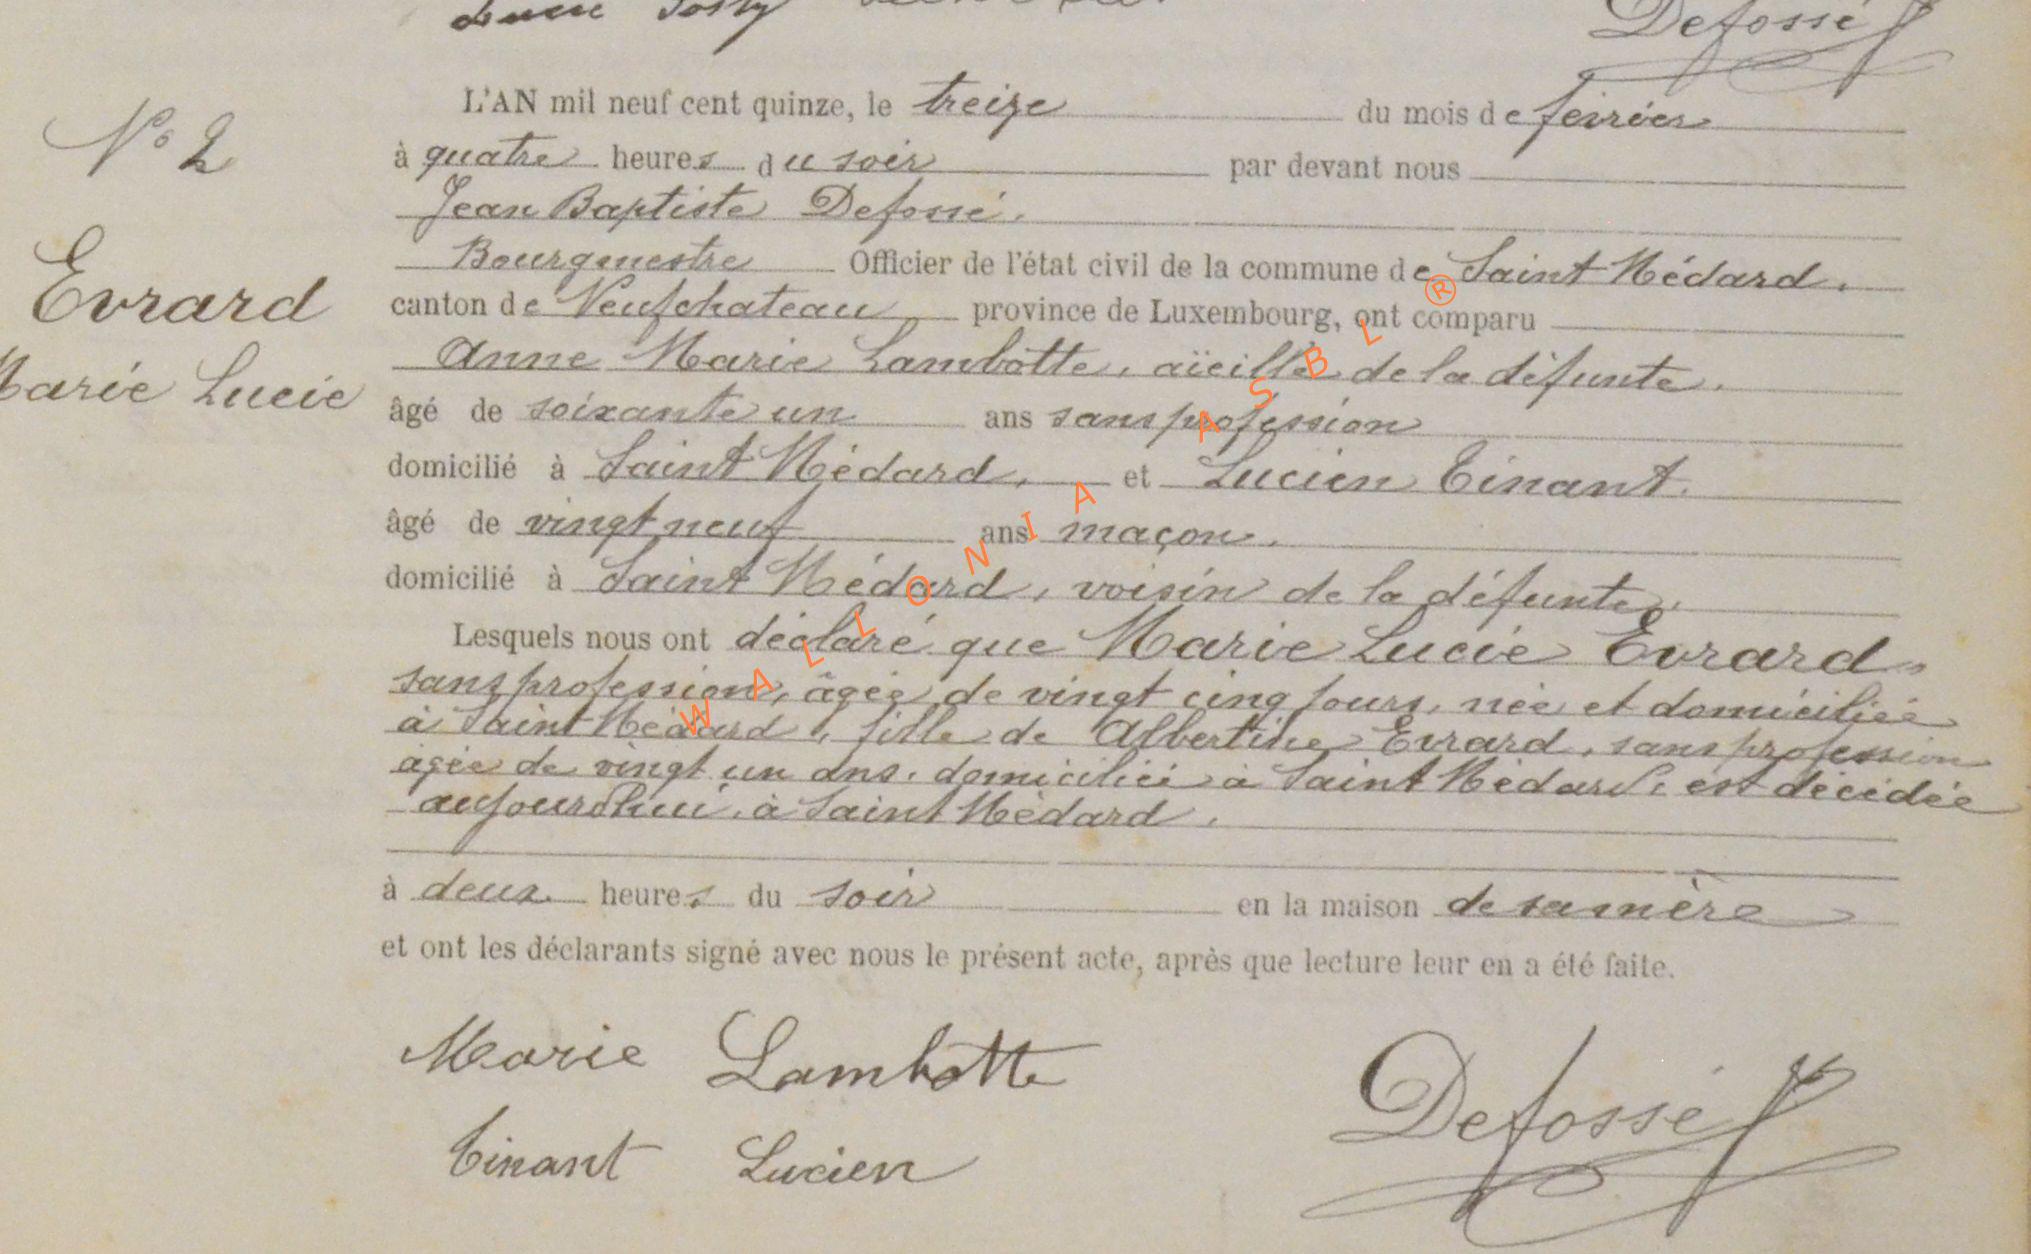 Defossé
N° 2
Evrard
Marie Lucie
L'AN mil neuf cent quinze, le treize du mois de feivrier
à quatre heures du soir par devant nous
Jean Baptiste Defossé.
Bourgmestre Officier de l'état civil de la commune de Saint Médard.
canton de Neufchateau province de Luxembourg, ont comparu
Anne Marie Lambotte, aïeille de la défunte,
âgé de soixante un ans sans profession
domicilié à Saint Médard, et Lucien Tinant.
âgé de vingt neuf ans maçon.
domicilié à Saint Médard, voisin de la défunte,
Lesquels nous ont déclaré que Marie Lucie Evrard,
sans profession, âgée de vingt cinq jours, née et domiciliée
à Saint Médard, fille de Albertine Evrard, sans profession
âgée de vingt un ans, domiciliée à Saint Médard, est décédée
aujourdhui, à Saint Médard,
à deux heures du soir en la maison de sa mère
et ont les déclarants signé avec nous le présent acte, après que lecture leur en a été faite.
Marie Lambotte
Defossé
Tinant Lucien
WALLONIA ASBL ®